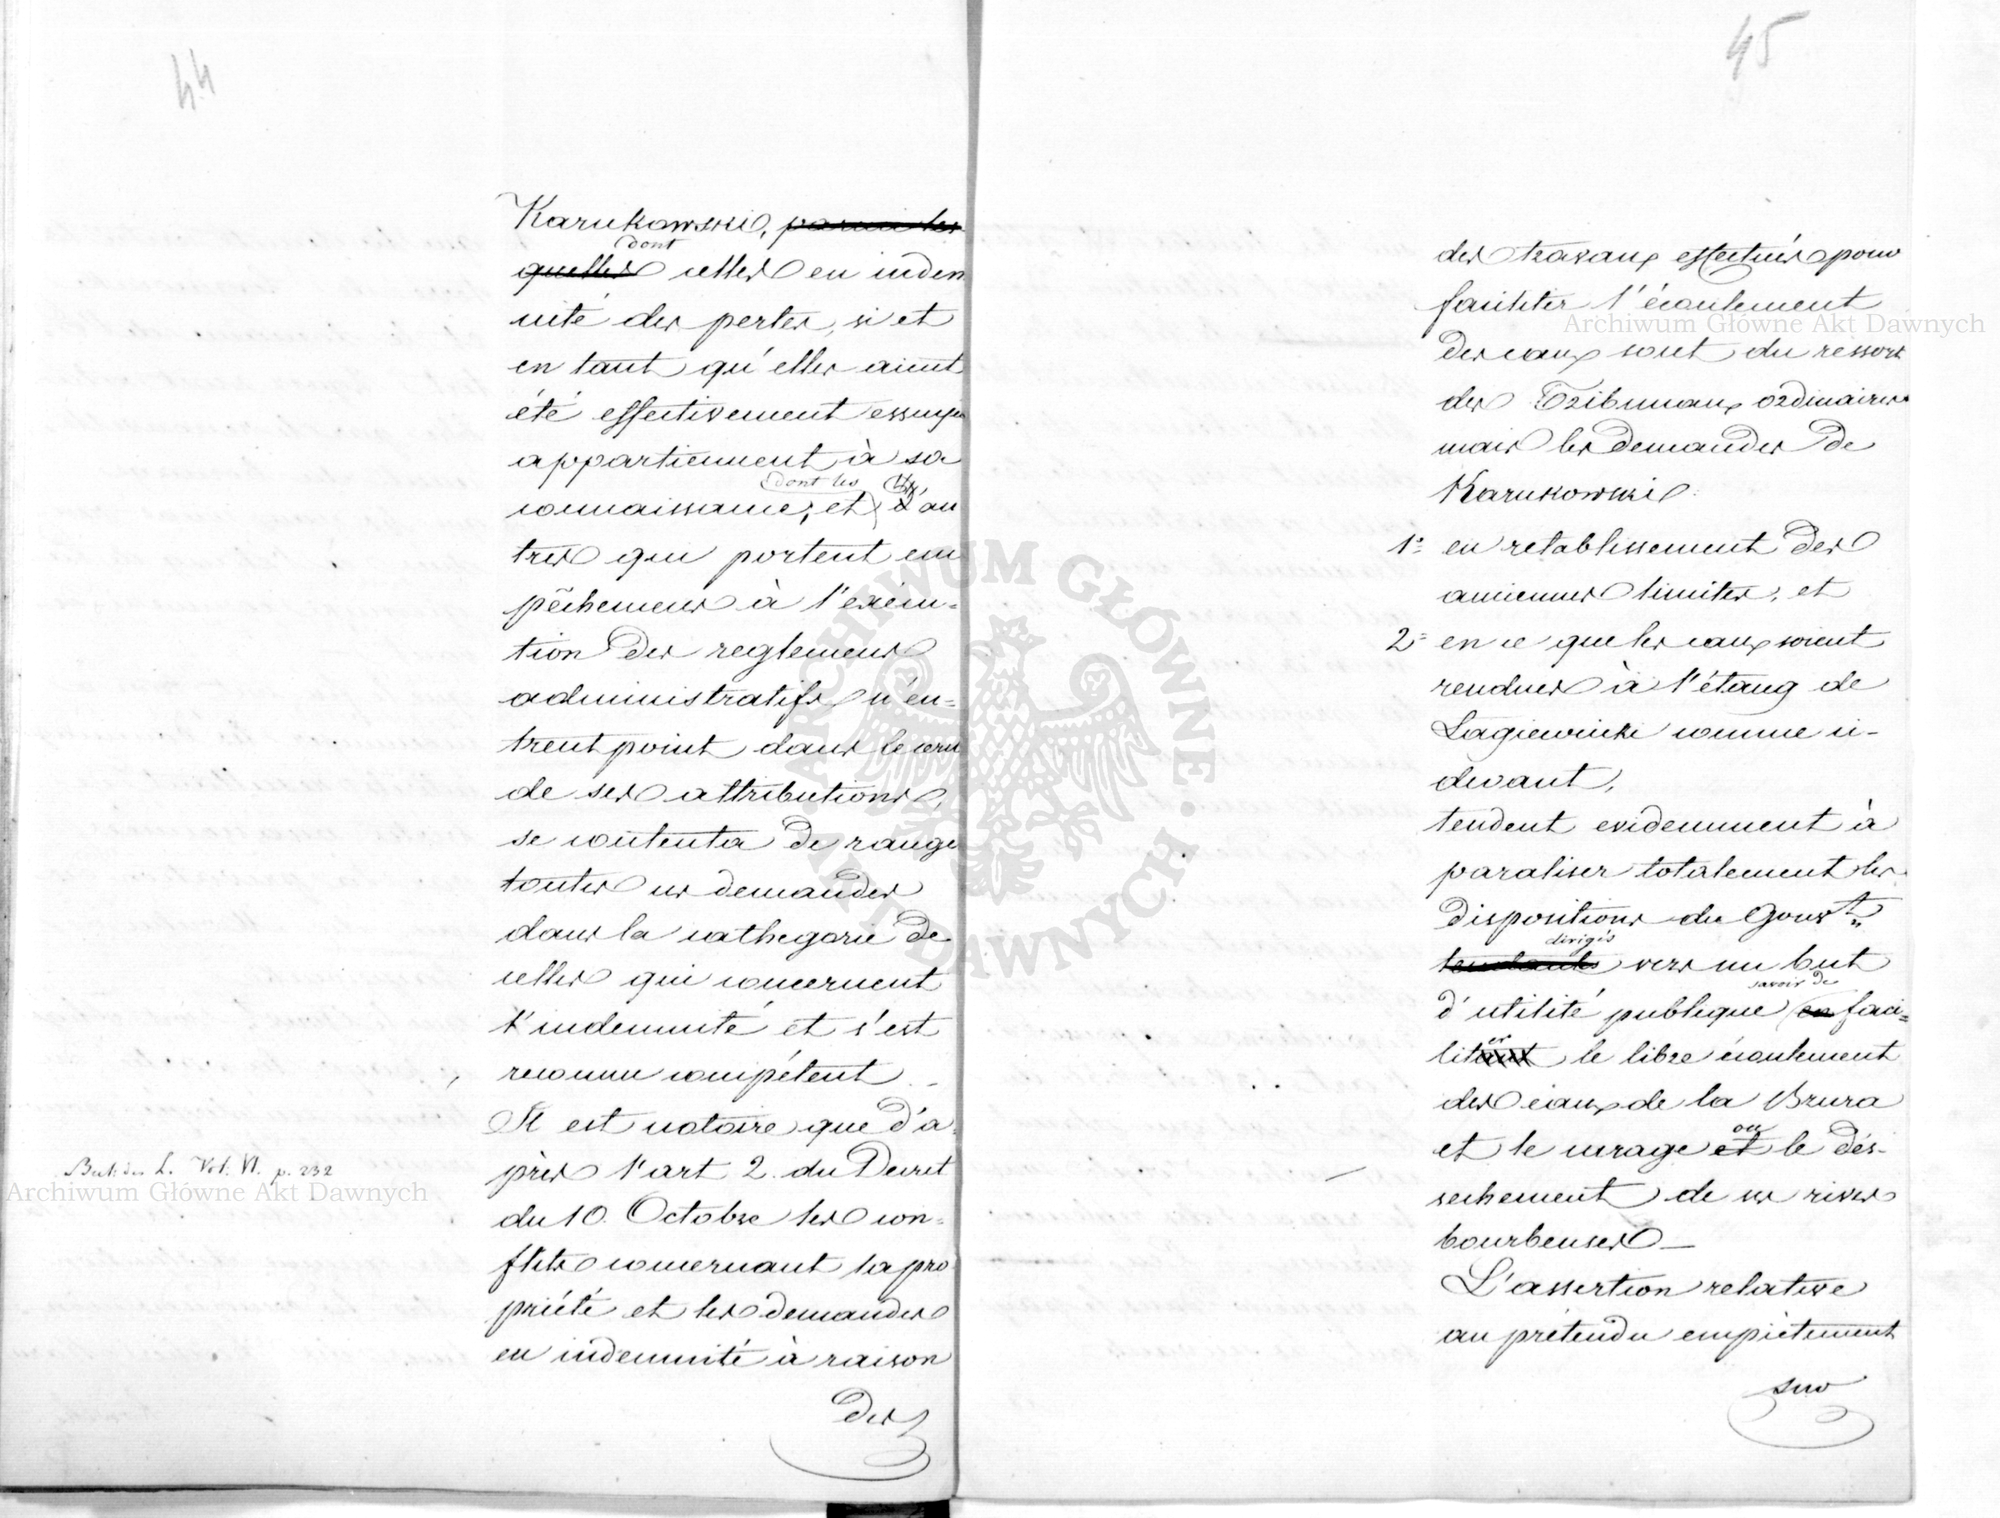 44
Karukowski, parmi les
dont
quelles celles en indem
nité des pertes, si et
en tant qu'elles aient
été effectivement essuyé
appartiennent à sa
dont les
connaissance, et d'au
tres qui portent em
pêchemens à l'exécu-
tion des reglemens
administratifs n'en=
trent point dans le cercu
de ses attributions,
se contenta de range
toutes ces demandes
dans la cathegorie de
celles qui concernent
l'indemnité et s'est
reconnu compétent.
Il est notoire que d'a
près l'art 2. du Decret
Bul: des L. Vol: VI. p. 232
du 10. Octobre les con-
flits concernant la pro
priété et les demandes
en indemnité à raison
des
45
des travaux effectués pour
faciliter l'écoulement
des eaux sont du ressort
des Tribunaux ordinaires
mais les demandes de
Karukowski:
1º en retablissement des
anciennes limites, et
2º en ce que les eaux soient
rendues à l'étang de
Łagiewniki comme ci-
devant,
tendent evidemment à
paraliser totalement les
dispositions du Gouvt
dirigés
tendants vers un but
savoir de
d'utilité publique en faci=
er
litant le libre écoulement
des eaux de la Bzura
ou
et le curage et le dés-
sechement de ses rives
bourbeuses —
L'assertion relative
au prétendu empiètement
sur
Archiwum Główne Akt Dawnych
Archiwum Główne Akt Dawnych
ARCHIWUM GŁÓWNE · AKT DAWNYCH ·